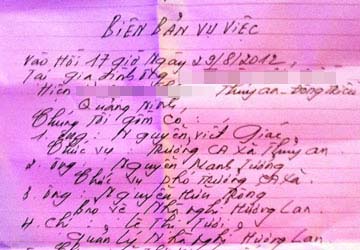 BIÊN BẢN VỤ VIỆC
Vào Hồi 17 giờ Ngày 29/8/2012,
Tại gia đình ông
Hiền Thủy an - Đông triều
, Quảng Ninh,
Chúng tôi gồm Có :
1. ông : Nguyễn viết Giác
Chức vụ : Trưởng CA Xã Thủy an
2. ông : Nguyễn Mạnh Tường
Chức vụ Phó trưởng CA xã
3. ông : Nguyễn Hữu Rộng
Bảo vệ Nhà nghỉ Hương Lan.
4. Chị : Lê Thị Tươi
Quản lý Nhà nghỉ Hương Lan